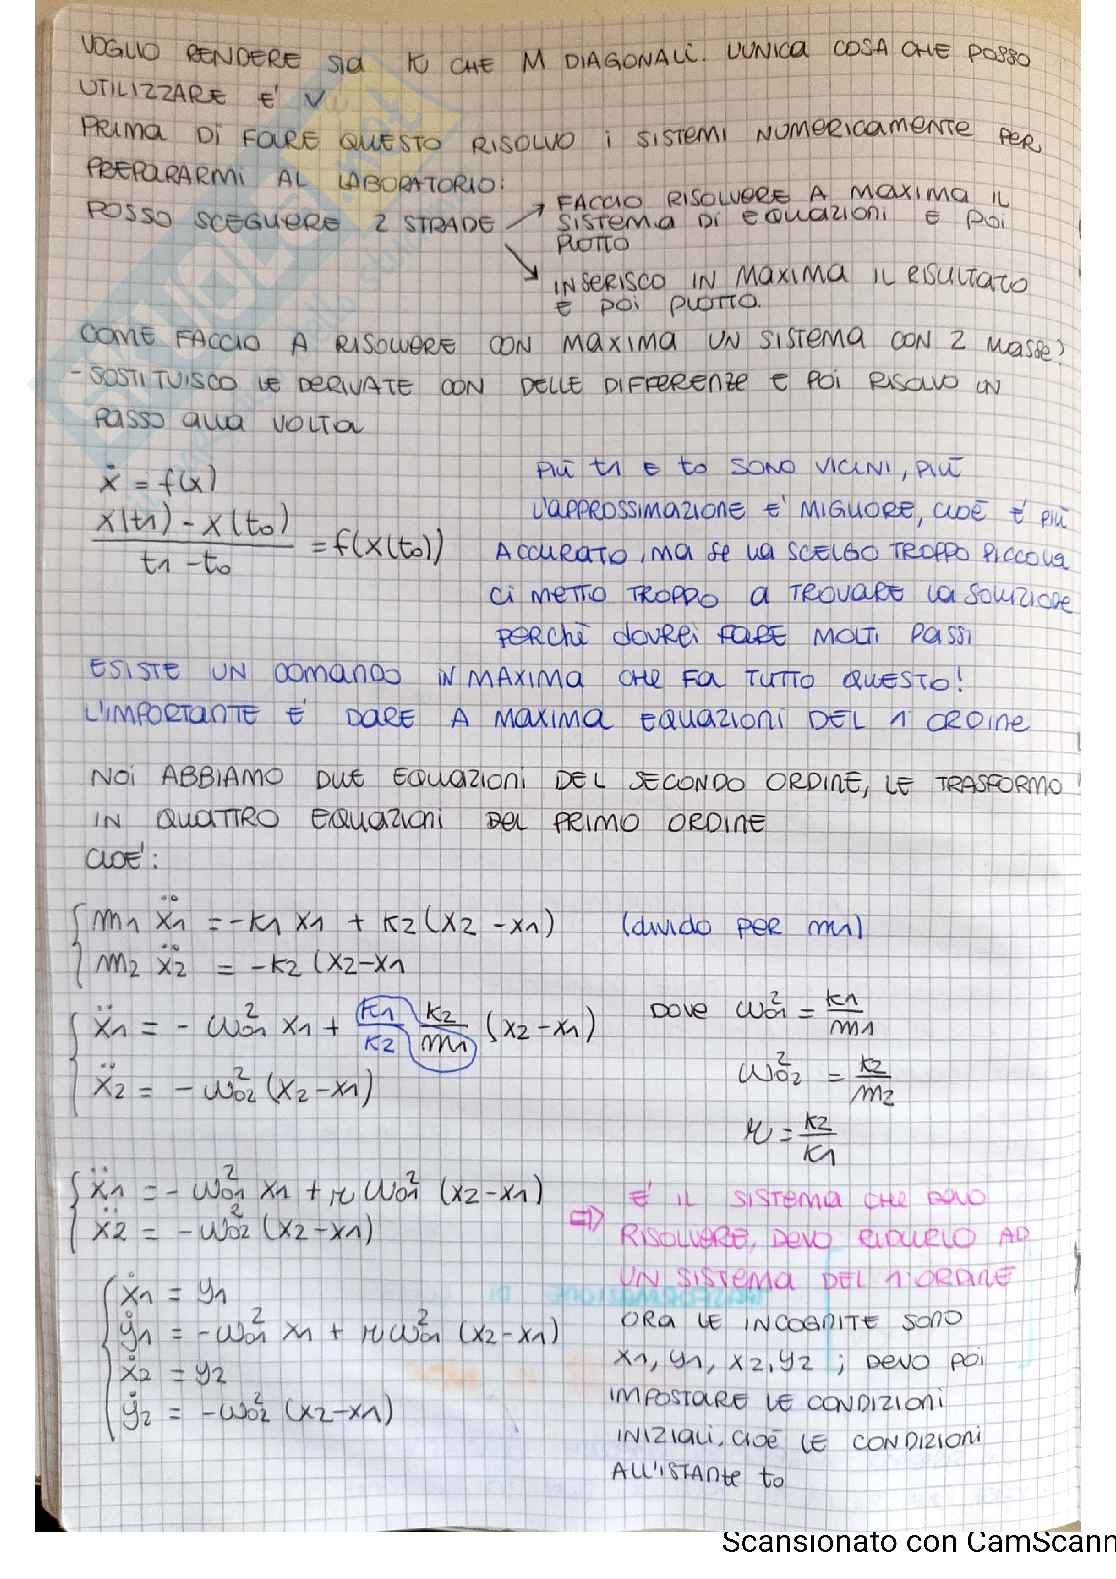 VOGLIO RENDERE SIA K CHE M DIAGONALI. L'UNICA COSA CHE POSSO
UTILIZZARE E' V
PRIMA DI FARE QUESTO RISOLVO I SISTEMI NUMERICAMENTE PER
PREPARARMI AL LABORATORIO:
POSSO SCEGLIERE 2 STRADE → FACCIO RISOLVERE A MAXIMA IL
SISTEMA DI EQUAZIONI E POI
PLOTTO
↘ INSERISCO IN MAXIMA IL RISULTATO
E POI PLOTTO.
COME FACCIO A RISOLVERE CON MAXIMA UN SISTEMA CON 2 MASSE?
- SOSTITUISCO LE DERIVATE CON DELLE DIFFERENZE E POI RISOLVO UN
PASSO ALLA VOLTA
ẋ = f(x)
(x(t1) - x(t0)) / (t1 - t0) = f(x(t0))
PIÙ t1 E t0 SONO VICINI, PIÙ
L'APPROSSIMAZIONE E' MIGLIORE, CIOÈ È PIÙ
ACCURATO, MA SE LA SCELGO TROPPO PICCOLA
CI METTO TROPPO A TROVARE LA SOLUZIONE
PERCHÈ DOVREI FARE MOLTI PASSI
ESISTE UN COMANDO IN MAXIMA CHE FA TUTTO QUESTO!
L'IMPORTANTE E' DARE A MAXIMA EQUAZIONI DEL 1° ORDINE
NOI ABBIAMO DUE EQUAZIONI DEL SECONDO ORDINE, LE TRASFORMO
IN QUATTRO EQUAZIONI DEL PRIMO ORDINE
CIOE':
{ m1 ẍ1 = -K1 x1 + K2 (x2 - x1) (divido PER m1)
m2 ẍ2 = -K2 (x2-x1
{ ẍ1 = - ω01² x1 + K1/K2 K2/m1 (x2-x1) DOVE ω01² = K1/m1
ẍ2 = - ω02² (x2-x1) ω02² = K2/m2
r = K2/K1
{ ẍ1 = - ω01² x1 + r ω01² (x2-x1)
ẍ2 = - ω02² (x2-x1)
⇒ E' IL SISTEMA CHE DEVO
RISOLVERE, DEVO RIDURLO AD
UN SISTEMA DEL 1° ORDINE
{ ẋ1 = y1
ẏ1 = -ω01² x1 + r ω01² (x2-x1)
ẋ2 = y2
ẏ2 = -ω02² (x2-x1)
ORA LE INCOGNITE SONO
x1, y1, x2, y2 ; DEVO POI
IMPOSTARE LE CONDIZIONI
INIZIALI, CIOÈ LE CONDIZIONI
ALL'ISTANTE t0
Scansionato con CamScann